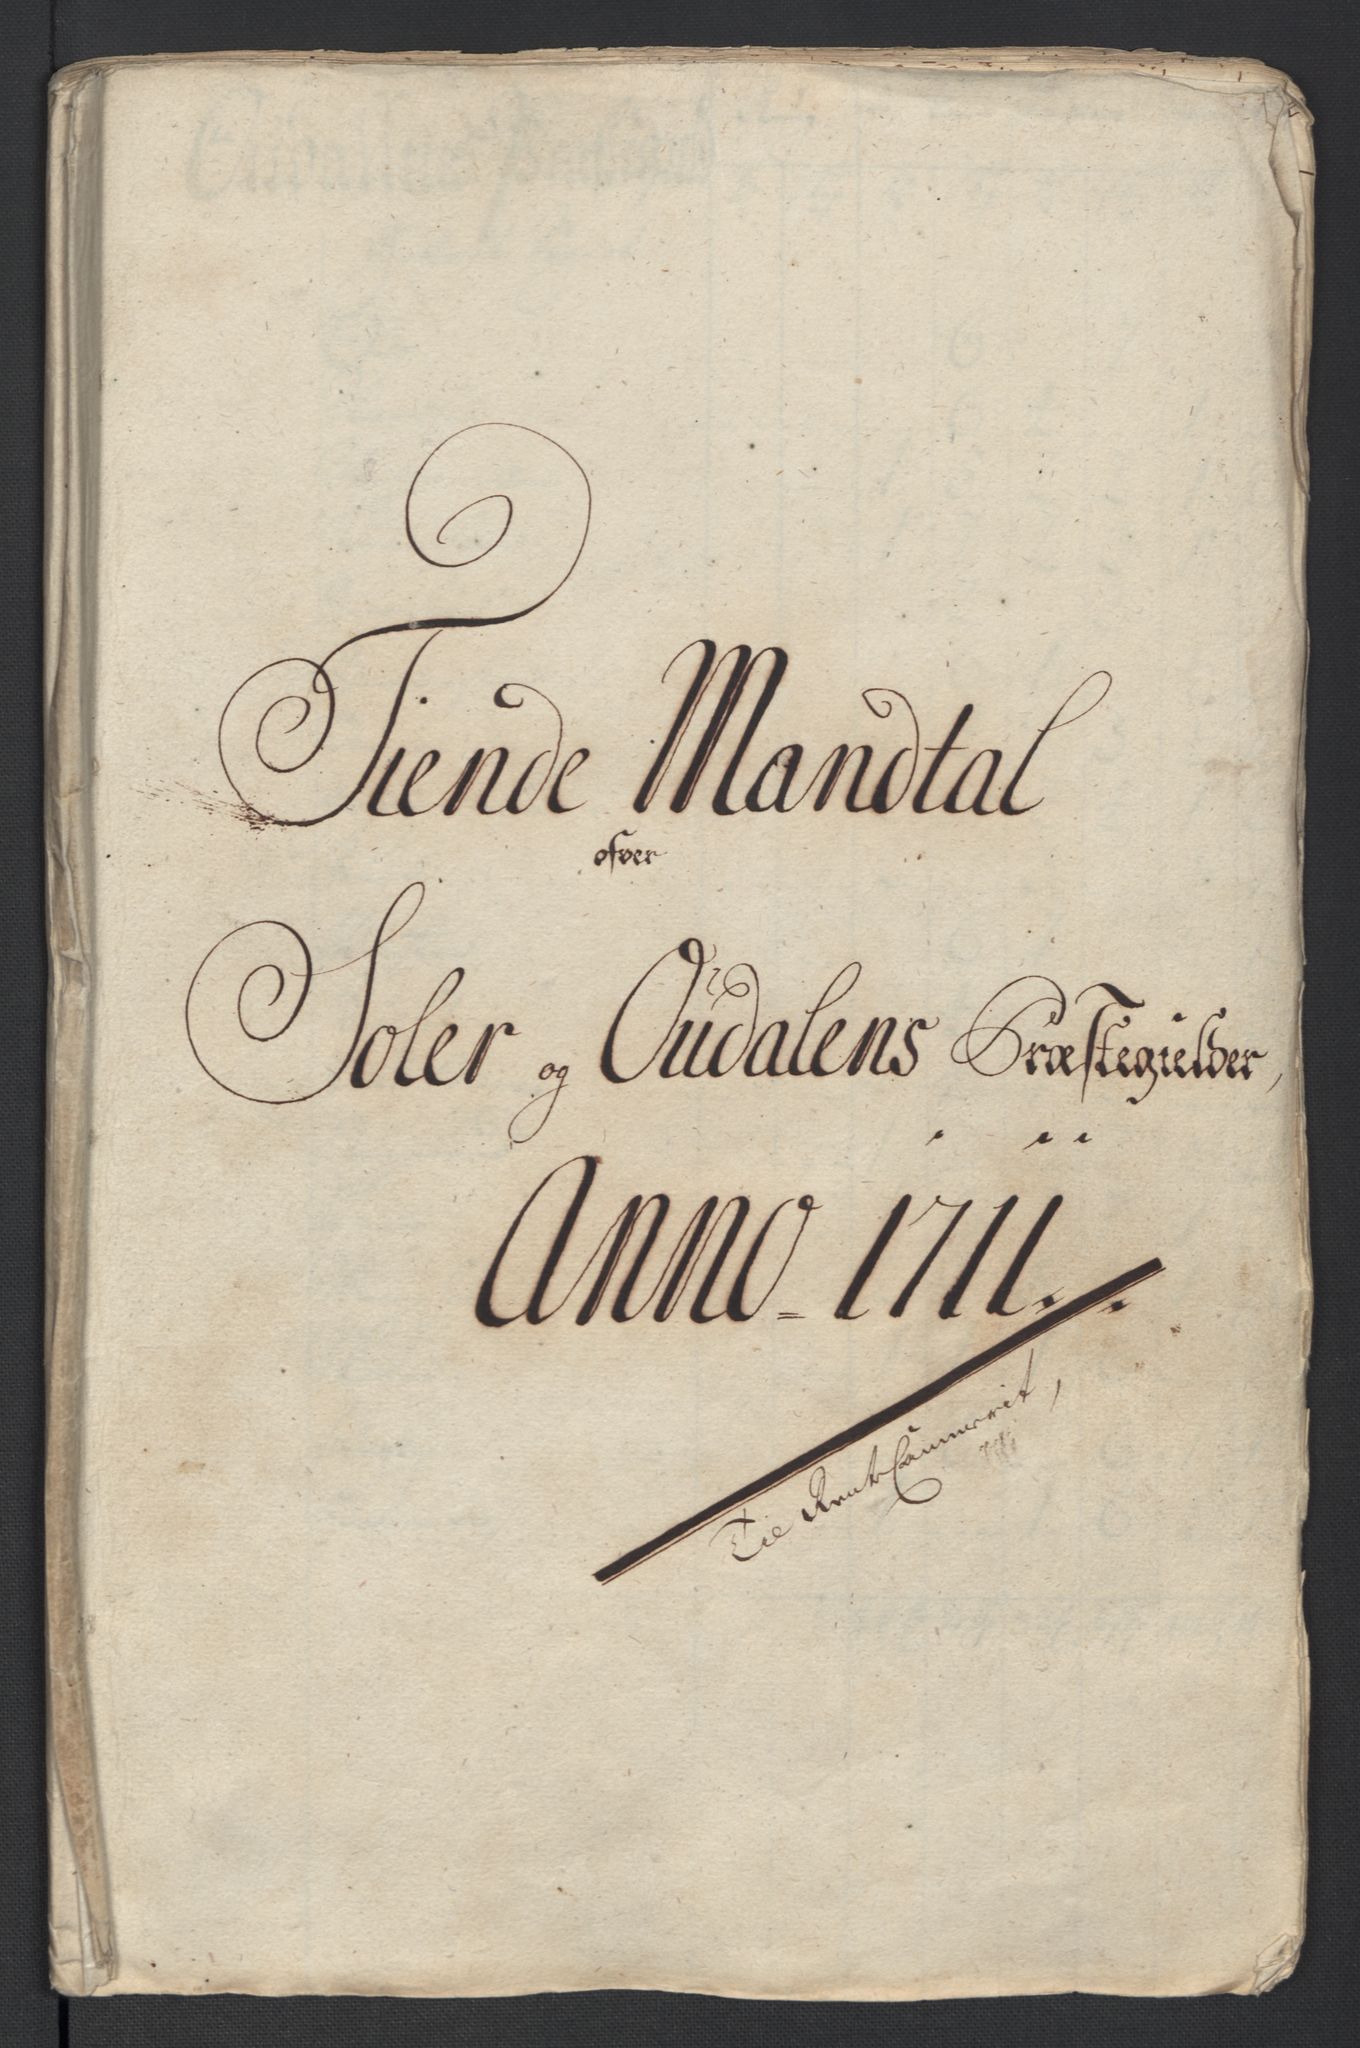 Tiende Mandtal
ofver
Soler og Oudalens Præstegielder,
Anno 1711.
Til Rente Cammerit,